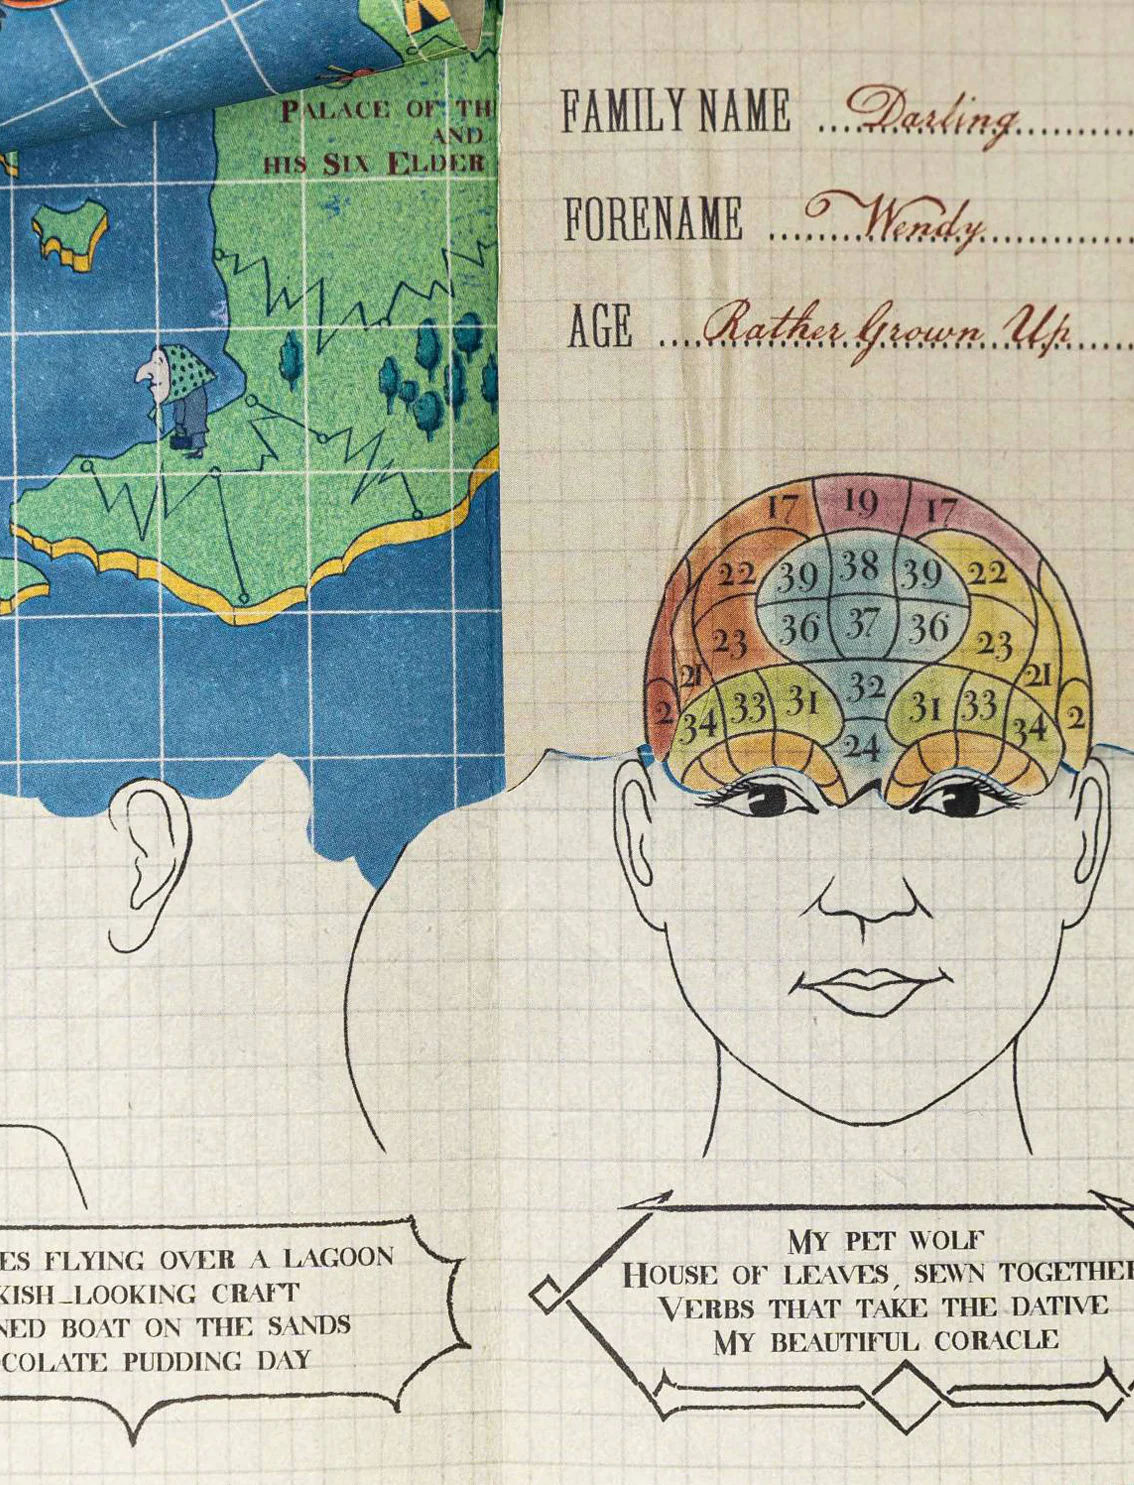 PALACE OF
AND
HIS SIX ELDER
FAMILY NAME Darling
FORENAME Wendy
AGE Rather Grown Up
17 19 17
22 39 38 39 22
23 36 37 36 23
21 32 21
2 34 33 31 31 33 34 2
24
FLYING OVER A LAGOON
LOOKING CRAFT
BOAT ON THE SANDS
PUDDING DAY
MY PET WOLF
HOUSE OF LEAVES, SEWN TOGETHER
VERBS THAT TAKE THE DATIVE
MY BEAUTIFUL CORACLE